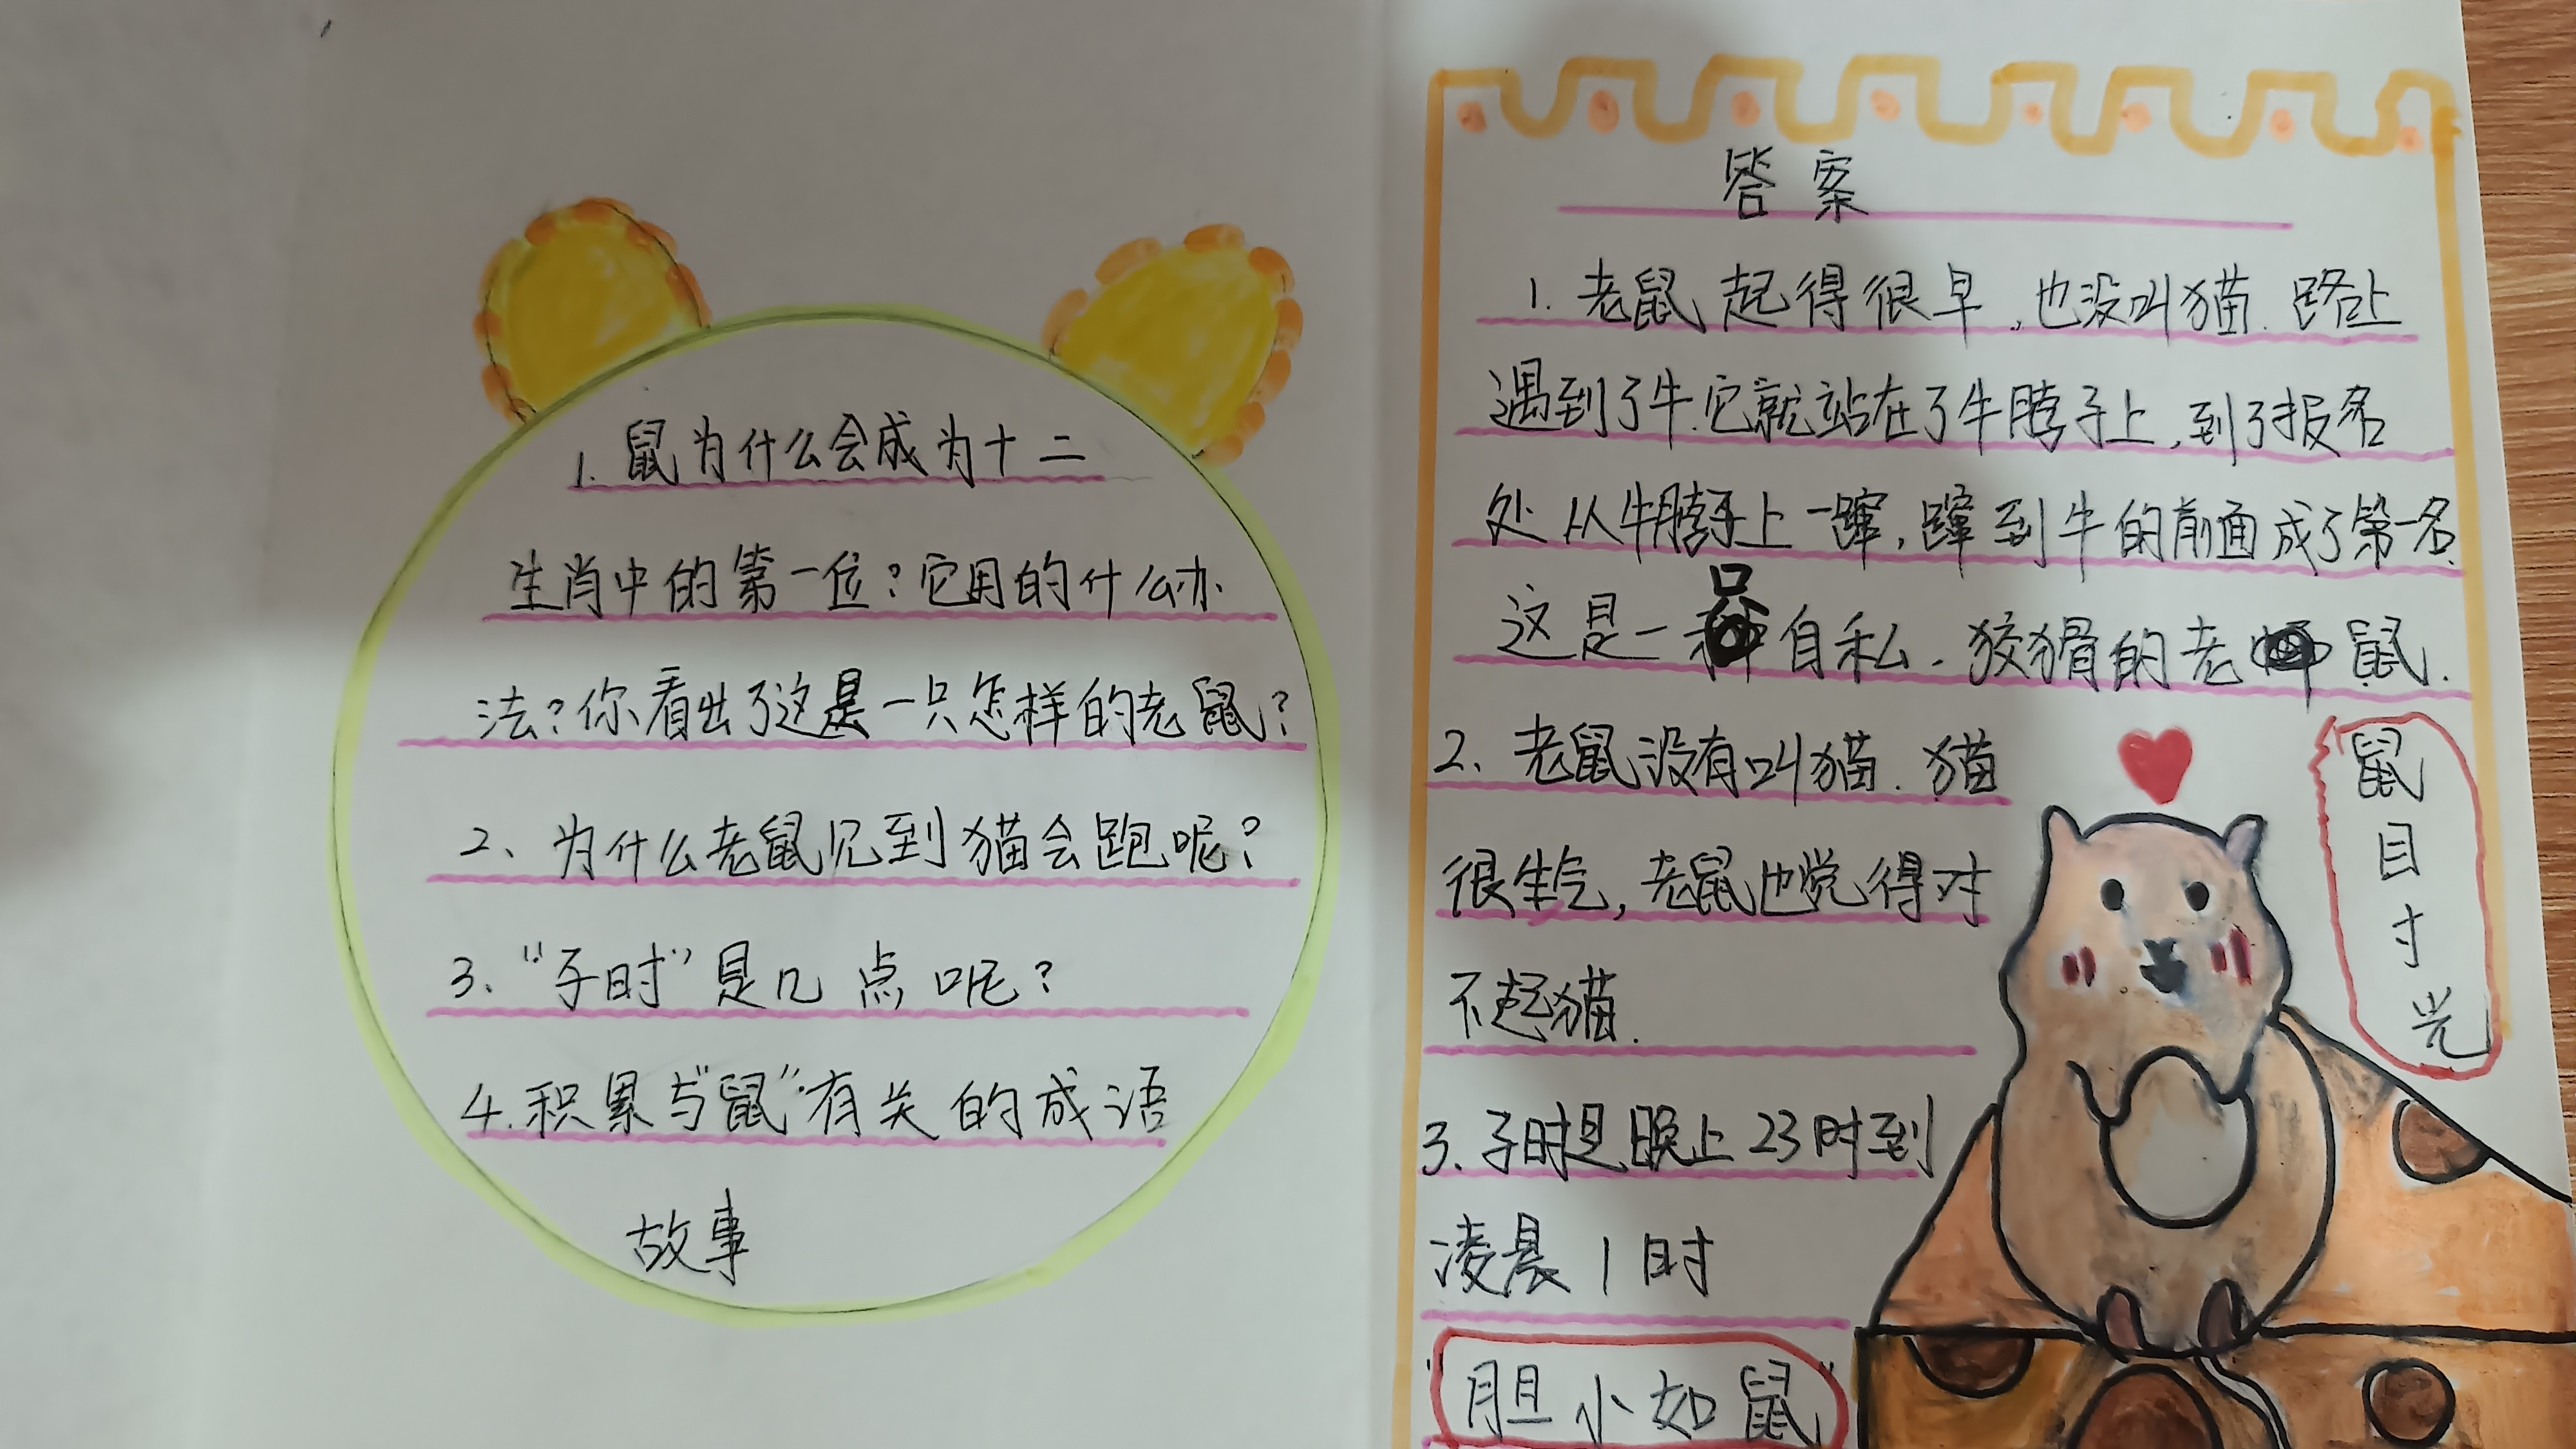 1. 鼠为什么会成为十二
生肖中的第一位?它用的什么办
法?你看出了这是一只怎样的老鼠?
2、为什么老鼠见到猫会跑呢?
3、“子时”是几点呢?
4.积累与“鼠”有关的成语
故事
答案
1. 老鼠起得很早,也没叫猫.路上
遇到了牛.它就站在了牛脖子上,到了报名
处从牛脖子上一蹿,蹿到牛的前面成了第一名.
这是一只自私.狡猾的老鼠.
2、老鼠没有叫猫.猫
很生气,老鼠也觉得对
不起猫.
3.子时是晚上23时到
凌晨1时
“胆小如鼠”
鼠目寸光